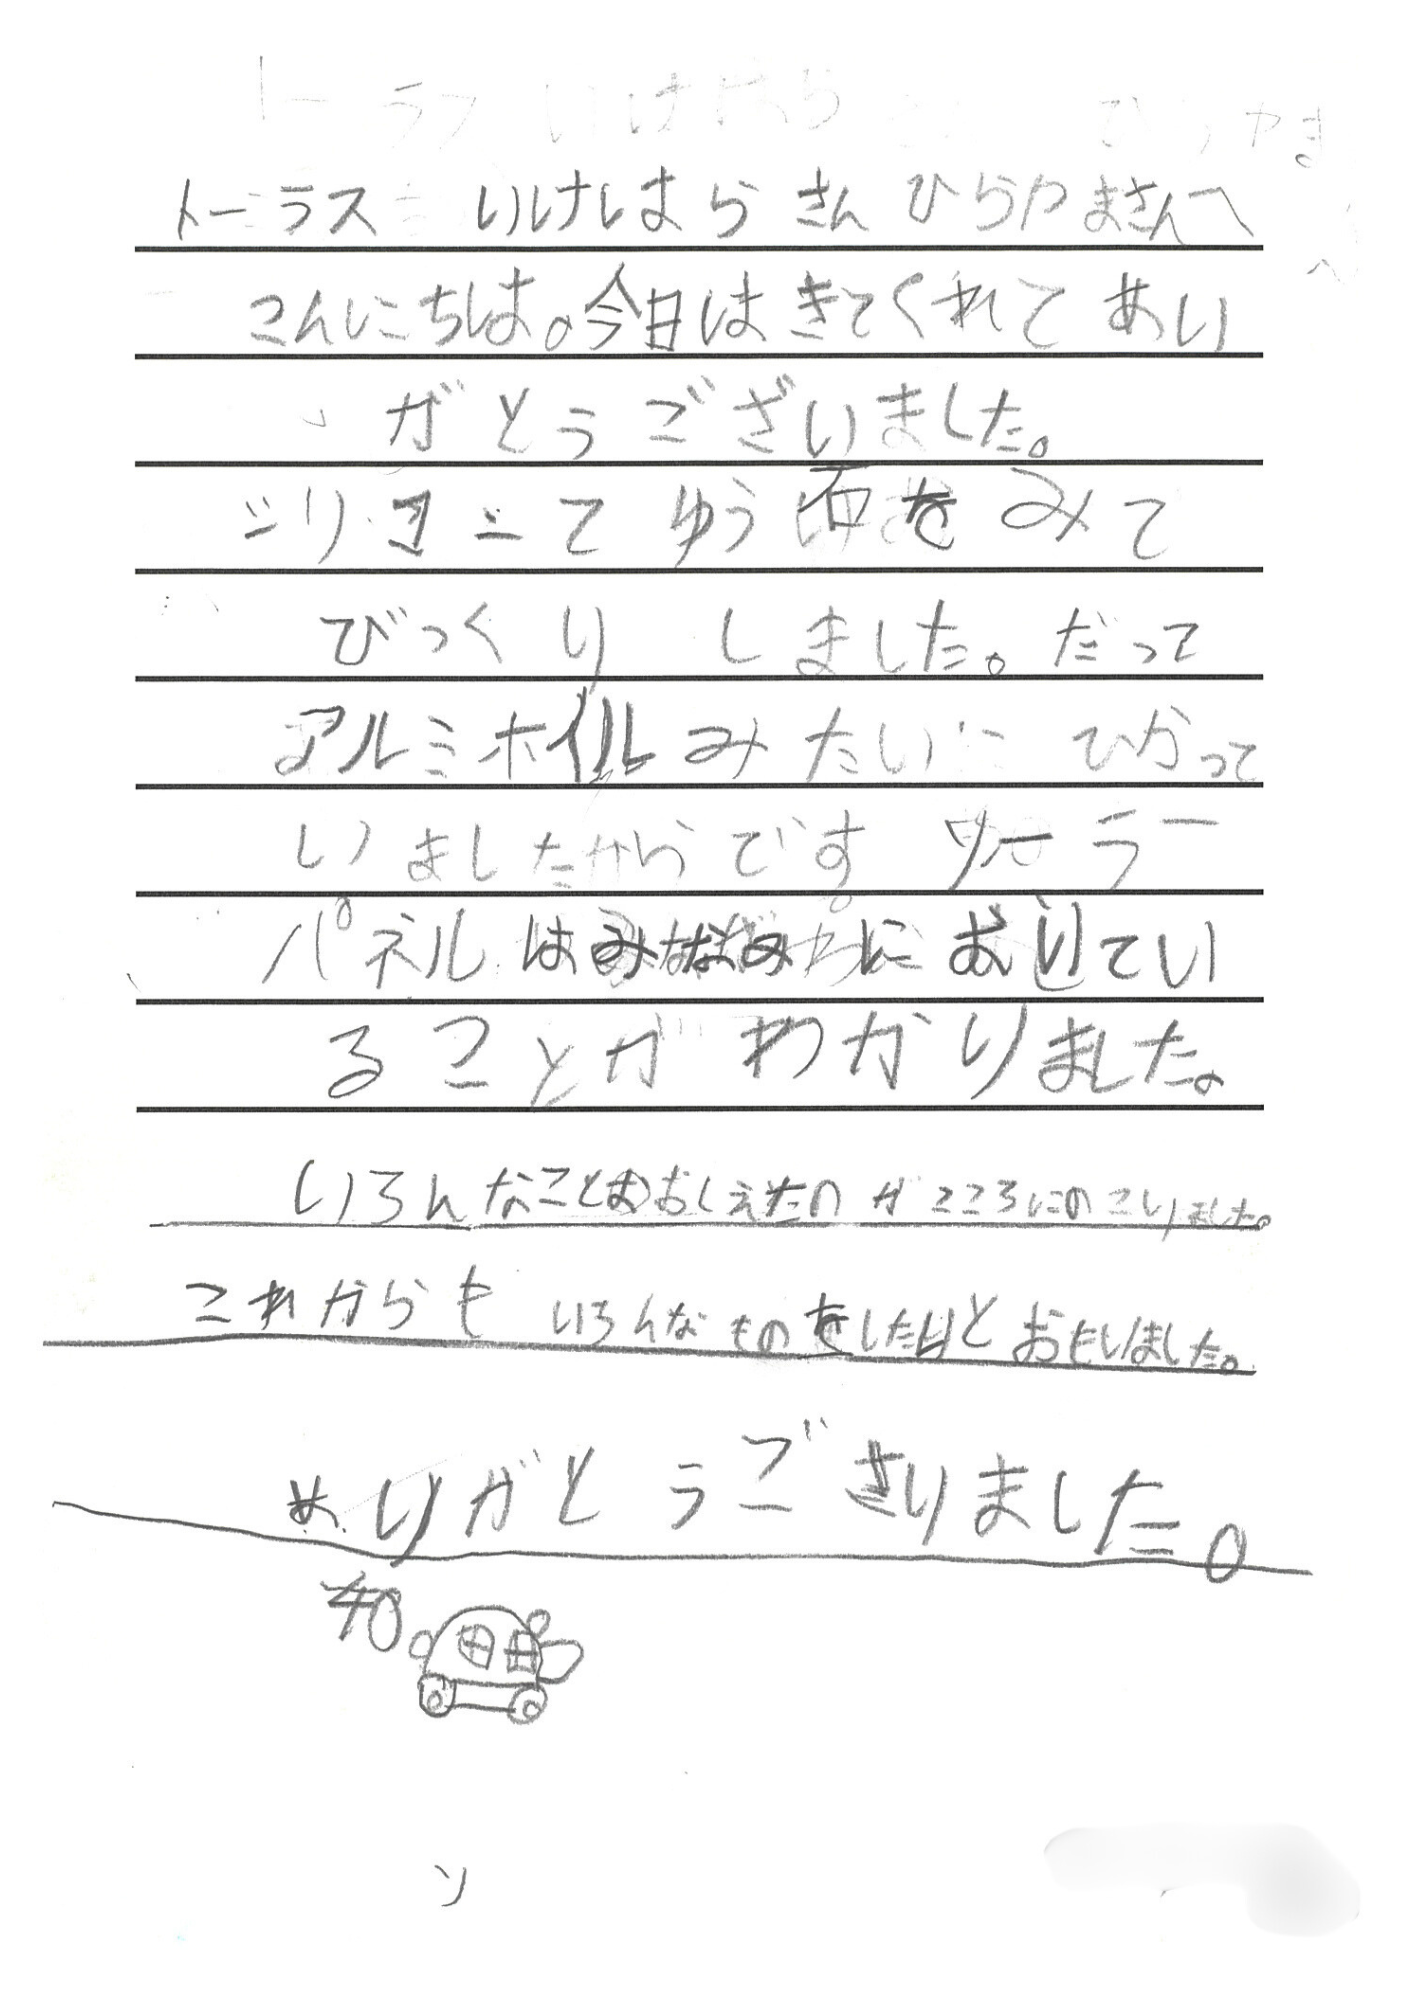 トーラス いけはらさん ひらやまさんへ
こんにちは。今日はきてくれてあり
がとうございました。
シリコンてゆう石をみて
びっくりしました。だって
アルミホイルみたいにひかって
いましたからです ソーラー
パネルはみなみに おいてい
ることがわかりました。
いろんなことおおしえたのがこころにのこりました。
これからも いろんなものをしたいとおもいました。
ありがとうございました。
ソ